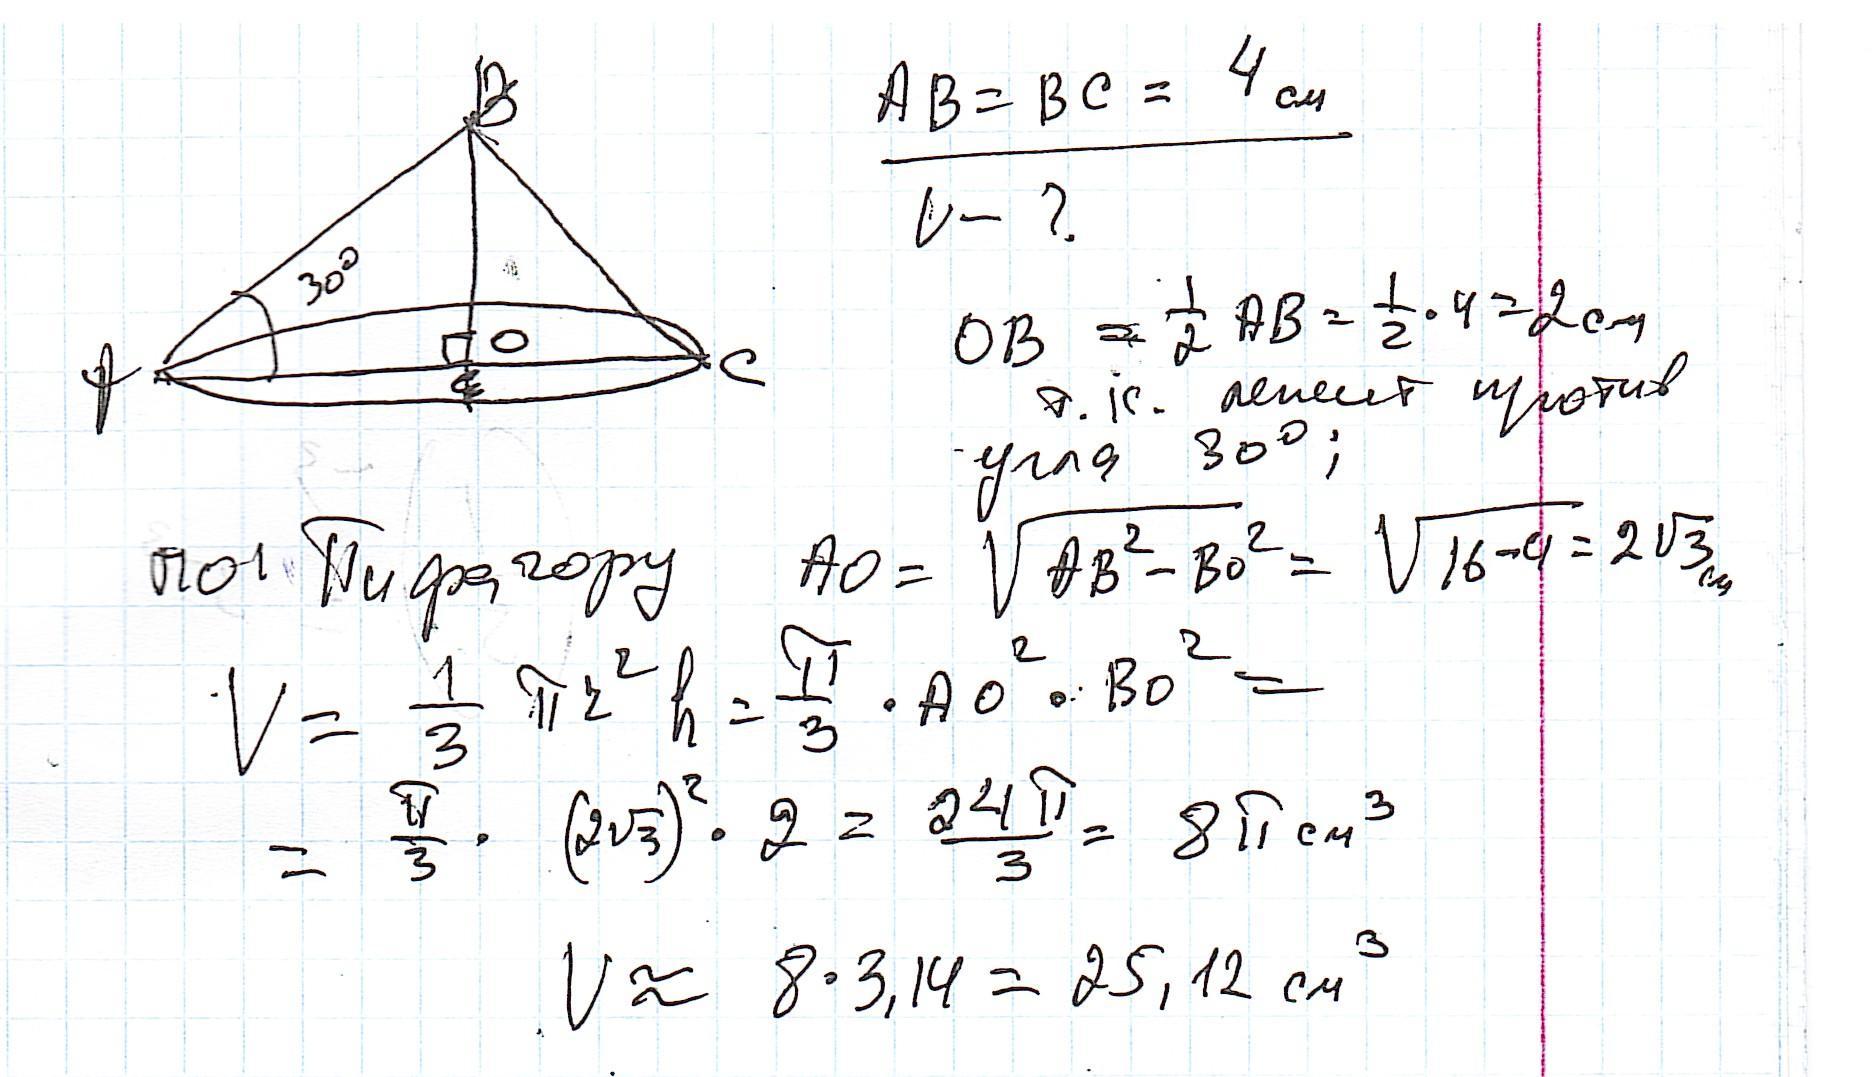 B
30°
O
A
C
AB = BC = 4 см
V - ?
OB = 1/2 AB = 1/2 · 4 = 2 см
т. к. лежит против
угла 30°;
по Пифагору AO = √(AB² - BO²) = √(16-4) = 2√3 см
V = 1/3 π r² h = π/3 · AO² · BO² =
= π/3 · (2√3)² · 2 = 24π/3 = 8π см³
V ≈ 8·3,14 = 25,12 см³